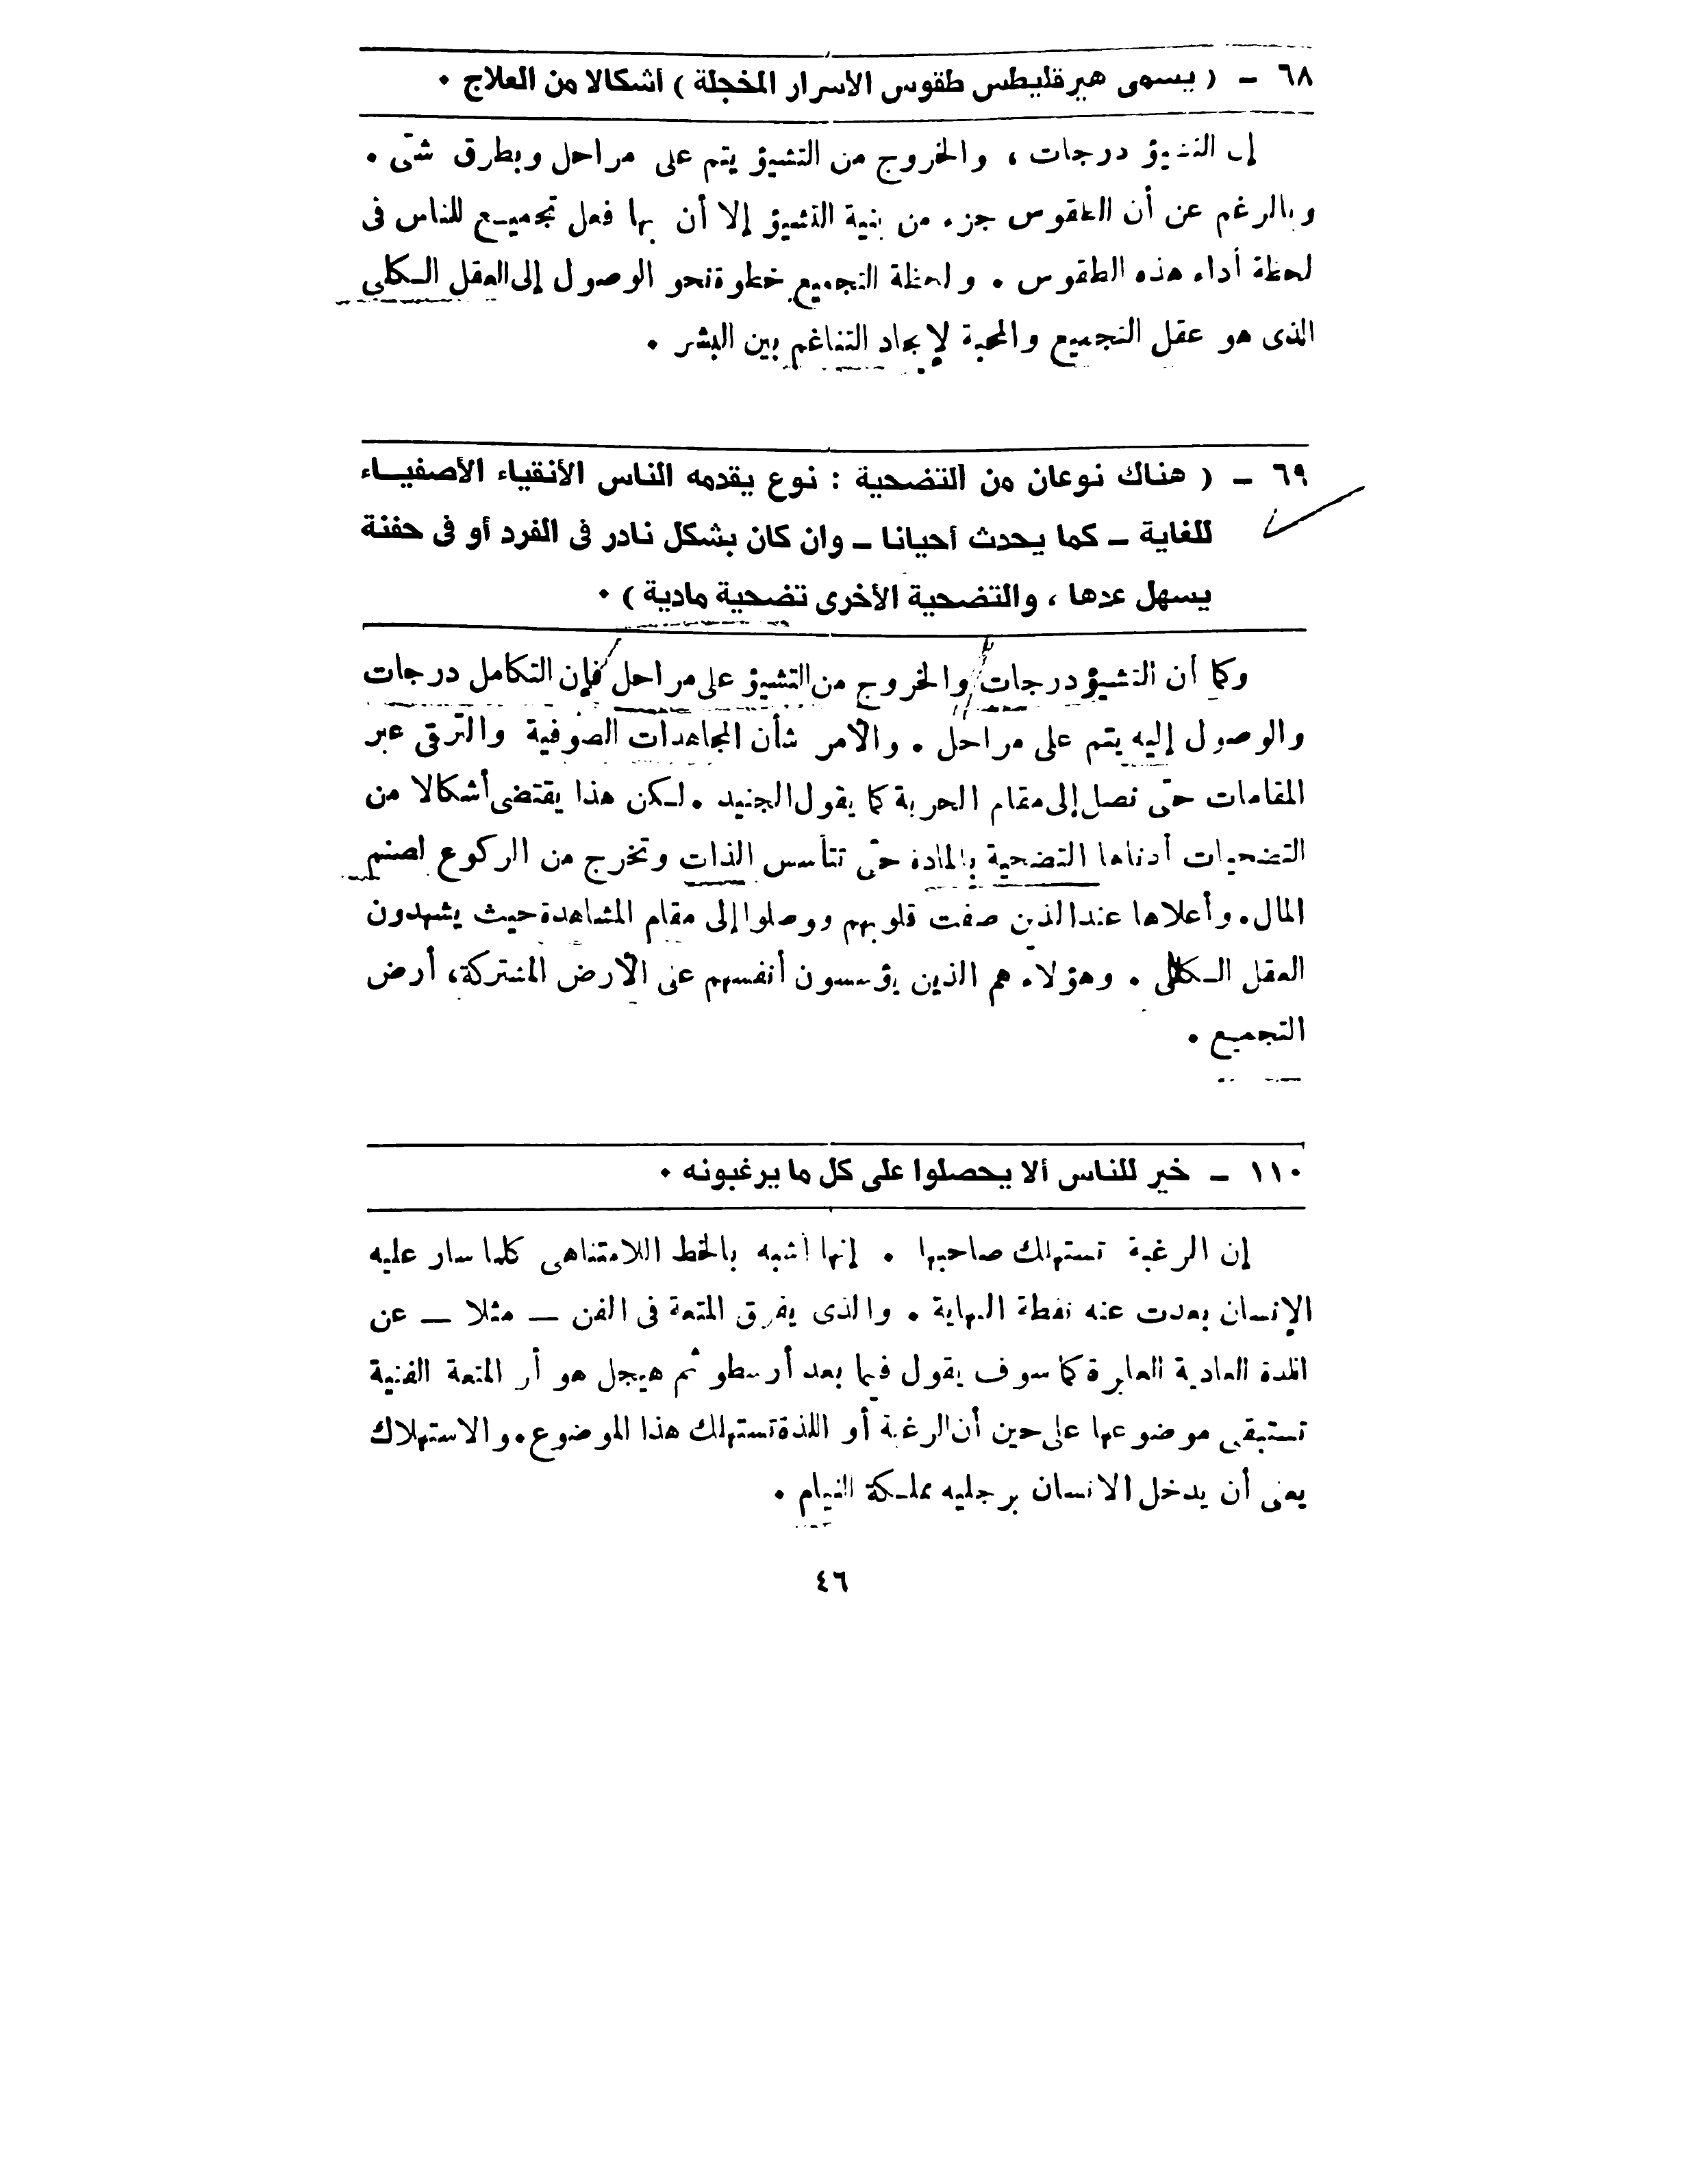 ٦٨ – ( يسمى هيرقليطس طقوس الأسرار المخجلة ) أشكالا من العلاج .
إن التشيؤ درجات ، والخروج من التشيؤ يتم على مراحل وبطرق شتى .
وبالرغم عن أن الطقوس جزء من بنية التشيؤ إلا أن بها فعل تجميع للناس فى
لحظة أداء هذه الطقوس . ولحظة التجميع خطوة نحو الوصول إلى العقل الكلى
الذى هو عقل التجميع والمحبة لإيجاد التناغم بين البشر .
٦٩ – ( هناك نوعان من التضحية : نوع يقدمه الناس الأنقياء الأصفياء
للغاية – كما يحدث أحيانا – وان كان بشكل نادر فى الفرد أو فى حفنة
يسهل عدها ، والتضحية الأخرى تضحية مادية ) .
وكما أن التشيؤ درجات والخروج من التشيؤ على مراحل فإن التكامل درجات
والوصول إليه يتم على مراحل . والأمر شأن المجاهدات الصوفية والترقى عبر
المقامات حتى نصل إلى مقام الحرية كما يقول الجنيد . لكن هذا يقتضى أشكالا من
التضحيات أدناها التضحية بالمادة حتى تتأسس الذات وتخرج من الركوع لصنم
المال . وأعلاها عند الذين صفت قلوبهم ووصلوا إلى مقام المشاهدة حيث يشهدون
العقل الكلى . وهؤلاء هم الذين يؤسسون أنفسهم على الأرض المشتركة، أرض
التجميع .
١١٠ – خير للناس ألا يحصلوا على كل ما يرغبونه .
إن الرغبة تستهلك صاحبها . إنها أشبه بالخط اللامتناهى كلما سار عليه
الإنسان بعدت عنه نقطة النهاية . والذى يفرق المتعة فى الفن – مثلا – عن
اللذة العادية العابرة كما سوف يقول فيما بعد أرسطو ثم هيجل هو أن المتعة الفنية
تستبقى موضوعها على حين أن الرغبة أو اللذة تستهلك هذا الموضوع . والاستهلاك
يعنى أن يدخل الانسان برجليه مملكة النيام .
٤٦